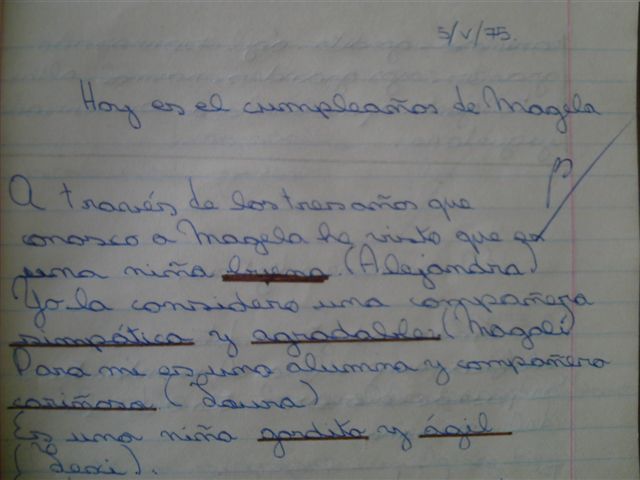 5/V/75.
Hoy es el cumpleaños de Magela
A través de los tres años que
conosco a Magela he visto que es
una niña buena. (Alejandra)
Yo la considero una compañera
simpática y agradable. (Magali)
Para mi es una alumna y compañera
cariñosa. (Laura)
Es una niña gordita y ágil
(Dexi).